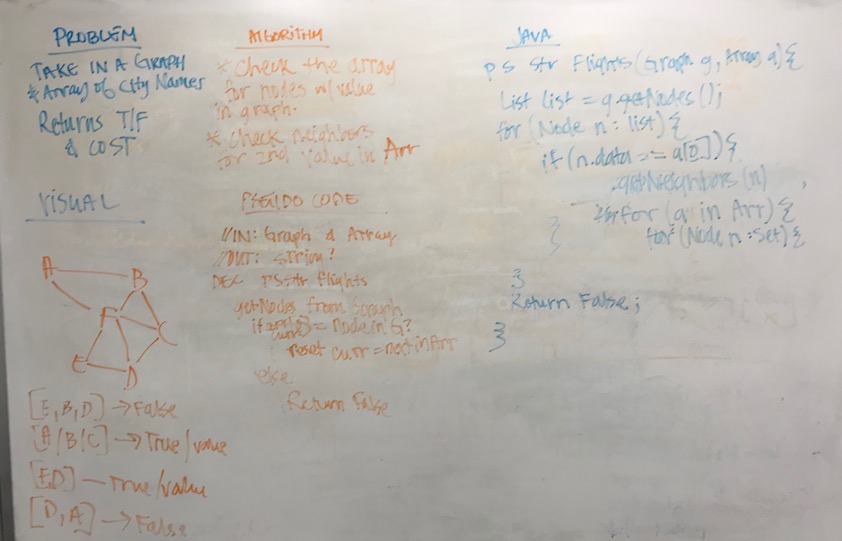 PROBLEM
TAKE IN A GRAPH
& Array of City Names
Returns T/F
& COST
VISUAL
A
B
F
C
E
D
[E, B, D] → False
[A/B/C] → True/value
[E,D] — True/value
[D, A] → False
ALGORITHM
* Check the array
for nodes w/ value
in graph.
* Check neighbors
for 2nd value in Arr
PSEUDO CODE
//IN: Graph & Array
//OUT: String?
DEC PS Str flights
getNodes from Graph
if = Node in G?
curr
reset curr = next in Arr
else
Return False
JAVA
PS Str Flights (Graph g, Array a) {
List list = g.getNodes();
for (Node n : list) {
if (n.data == a[0]) {
.getNeighbors(n)
for (a in Arr) {
for (Node n : Set) {
}
}
Return False;
}